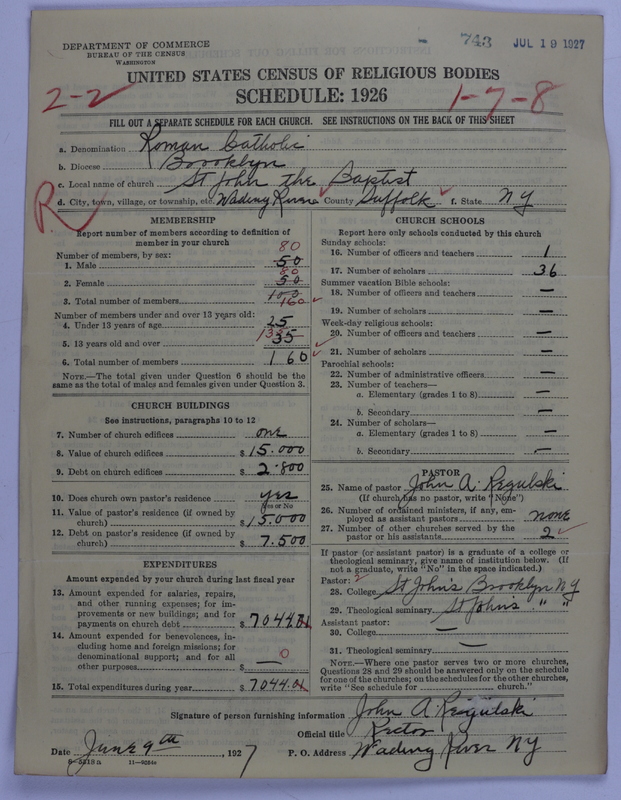 DEPARTMENT OF COMMERCE
BUREAU OF THE CENSUS
WASHINGTON
743 JUL 19 1927
UNITED STATES CENSUS OF RELIGIOUS BODIES
SCHEDULE: 1926
2-2
1-7-8
FILL OUT A SEPARATE SCHEDULE FOR EACH CHURCH. SEE INSTRUCTIONS ON THE BACK OF THIS SHEET
a. Denomination Roman Catholic
b. Diocese Brooklyn
c. Local name of church St John the Baptist
d. City, town, village, or township, etc. Wading River County Suffolk f. State NY
R
MEMBERSHIP
Report number of members according to definition of
member in your church
Number of members, by sex: 80
1. Male 50
80
2. Female 50
3. Total number of members 100 160
Number of members under and over 13 years old:
4. Under 13 years of age 25
5. 13 years old and over 135 35
6. Total number of members 160
NOTE.—The total given under Question 6 should be the
same as the total of males and females given under Question 3.
CHURCH BUILDINGS
See instructions, paragraphs 10 to 12
7. Number of church edifices one
8. Value of church edifices $ 15.000
9. Debt on church edifices $ 2.800
10. Does church own pastor's residence yes
(Yes or No)
11. Value of pastor's residence (if owned by
church) $ 15.000
12. Debt on pastor's residence (if owned by
church) $ 7.500
EXPENDITURES
Amount expended by your church during last fiscal year
13. Amount expended for salaries, repairs,
and other running expenses; for im-
provements or new buildings; and for
payments on church debt $ 7044.01
14. Amount expended for benevolences, in-
cluding home and foreign missions; for
denominational support; and for all
other purposes $ — 0
15. Total expenditures during year $ 7044.01
CHURCH SCHOOLS
Report here only schools conducted by this church
Sunday schools:
16. Number of officers and teachers 1
17. Number of scholars 36
Summer vacation Bible schools:
18. Number of officers and teachers —
19. Number of scholars —
Week-day religious schools:
20. Number of officers and teachers —
21. Number of scholars —
Parochial schools:
22. Number of administrative officers —
23. Number of teachers—
a. Elementary (grades 1 to 8) —
b. Secondary —
24. Number of scholars—
a. Elementary (grades 1 to 8) —
b. Secondary —
PASTOR
25. Name of pastor John A. Regulski
(If church has no pastor, write "None")
26. Number of ordained ministers, if any, em-
ployed as assistant pastors none
27. Number of other churches served by the
pastor or his assistants 2
If pastor (or assistant pastor) is a graduate of a college or
theological seminary, give name of institution below. (If
not a graduate, write "No" in the space indicated.)
Pastor: 2
28. College St John's, Brooklyn NY
29. Theological seminary St John's " "
Assistant pastor:
30. College —
31. Theological seminary —
NOTE.—Where one pastor serves two or more churches,
Questions 28 and 29 should be answered only on the schedule
for one of the churches; on the schedules for the other churches,
write "See schedule for church."
Signature of person furnishing information John A Regulski
Official title Rector
Date June 9th, 1927 P. O. Address Wading River NY
8-5318 a 11-8084a